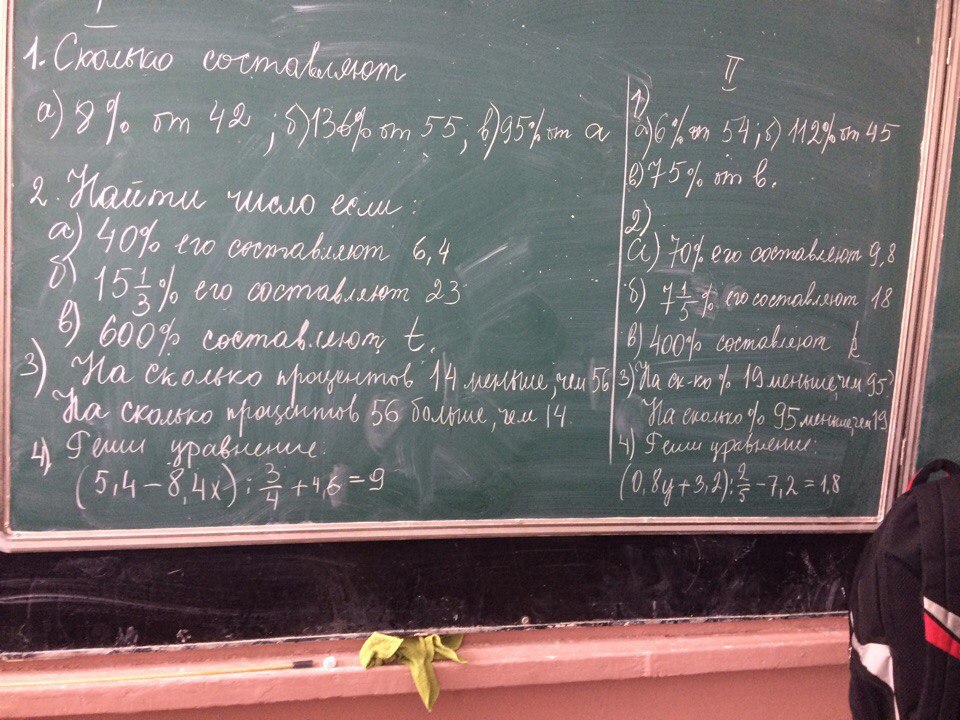 I
1. Сколько составляют
а) 8% от 42; б) 136% от 55, в) 95% от а
2. Найти число если:
а) 40% его составляют 6,4
б) 15 1/3% его составляют 23
в) 600% составляют t.
3) На сколько процентов 14 меньше, чем 56
На сколько процентов 56 больше, чем 14.
4) Реши уравнение:
(5,4 - 8,4x) : 3/4 + 4,6 = 9
II
1)
а) 6% от 54; б) 112% от 45
в) 75% от в.
2)
а) 70% его составляют 9,8
б) 7 1/5% его составляют 18
в) 400% составляют k
3) На ск-ко % 19 меньше, чем 95?
На сколько % 95 меньше, чем 19
4) Реши уравнение:
(0,8y + 3,2) : 2/5 - 7,2 = 1,8